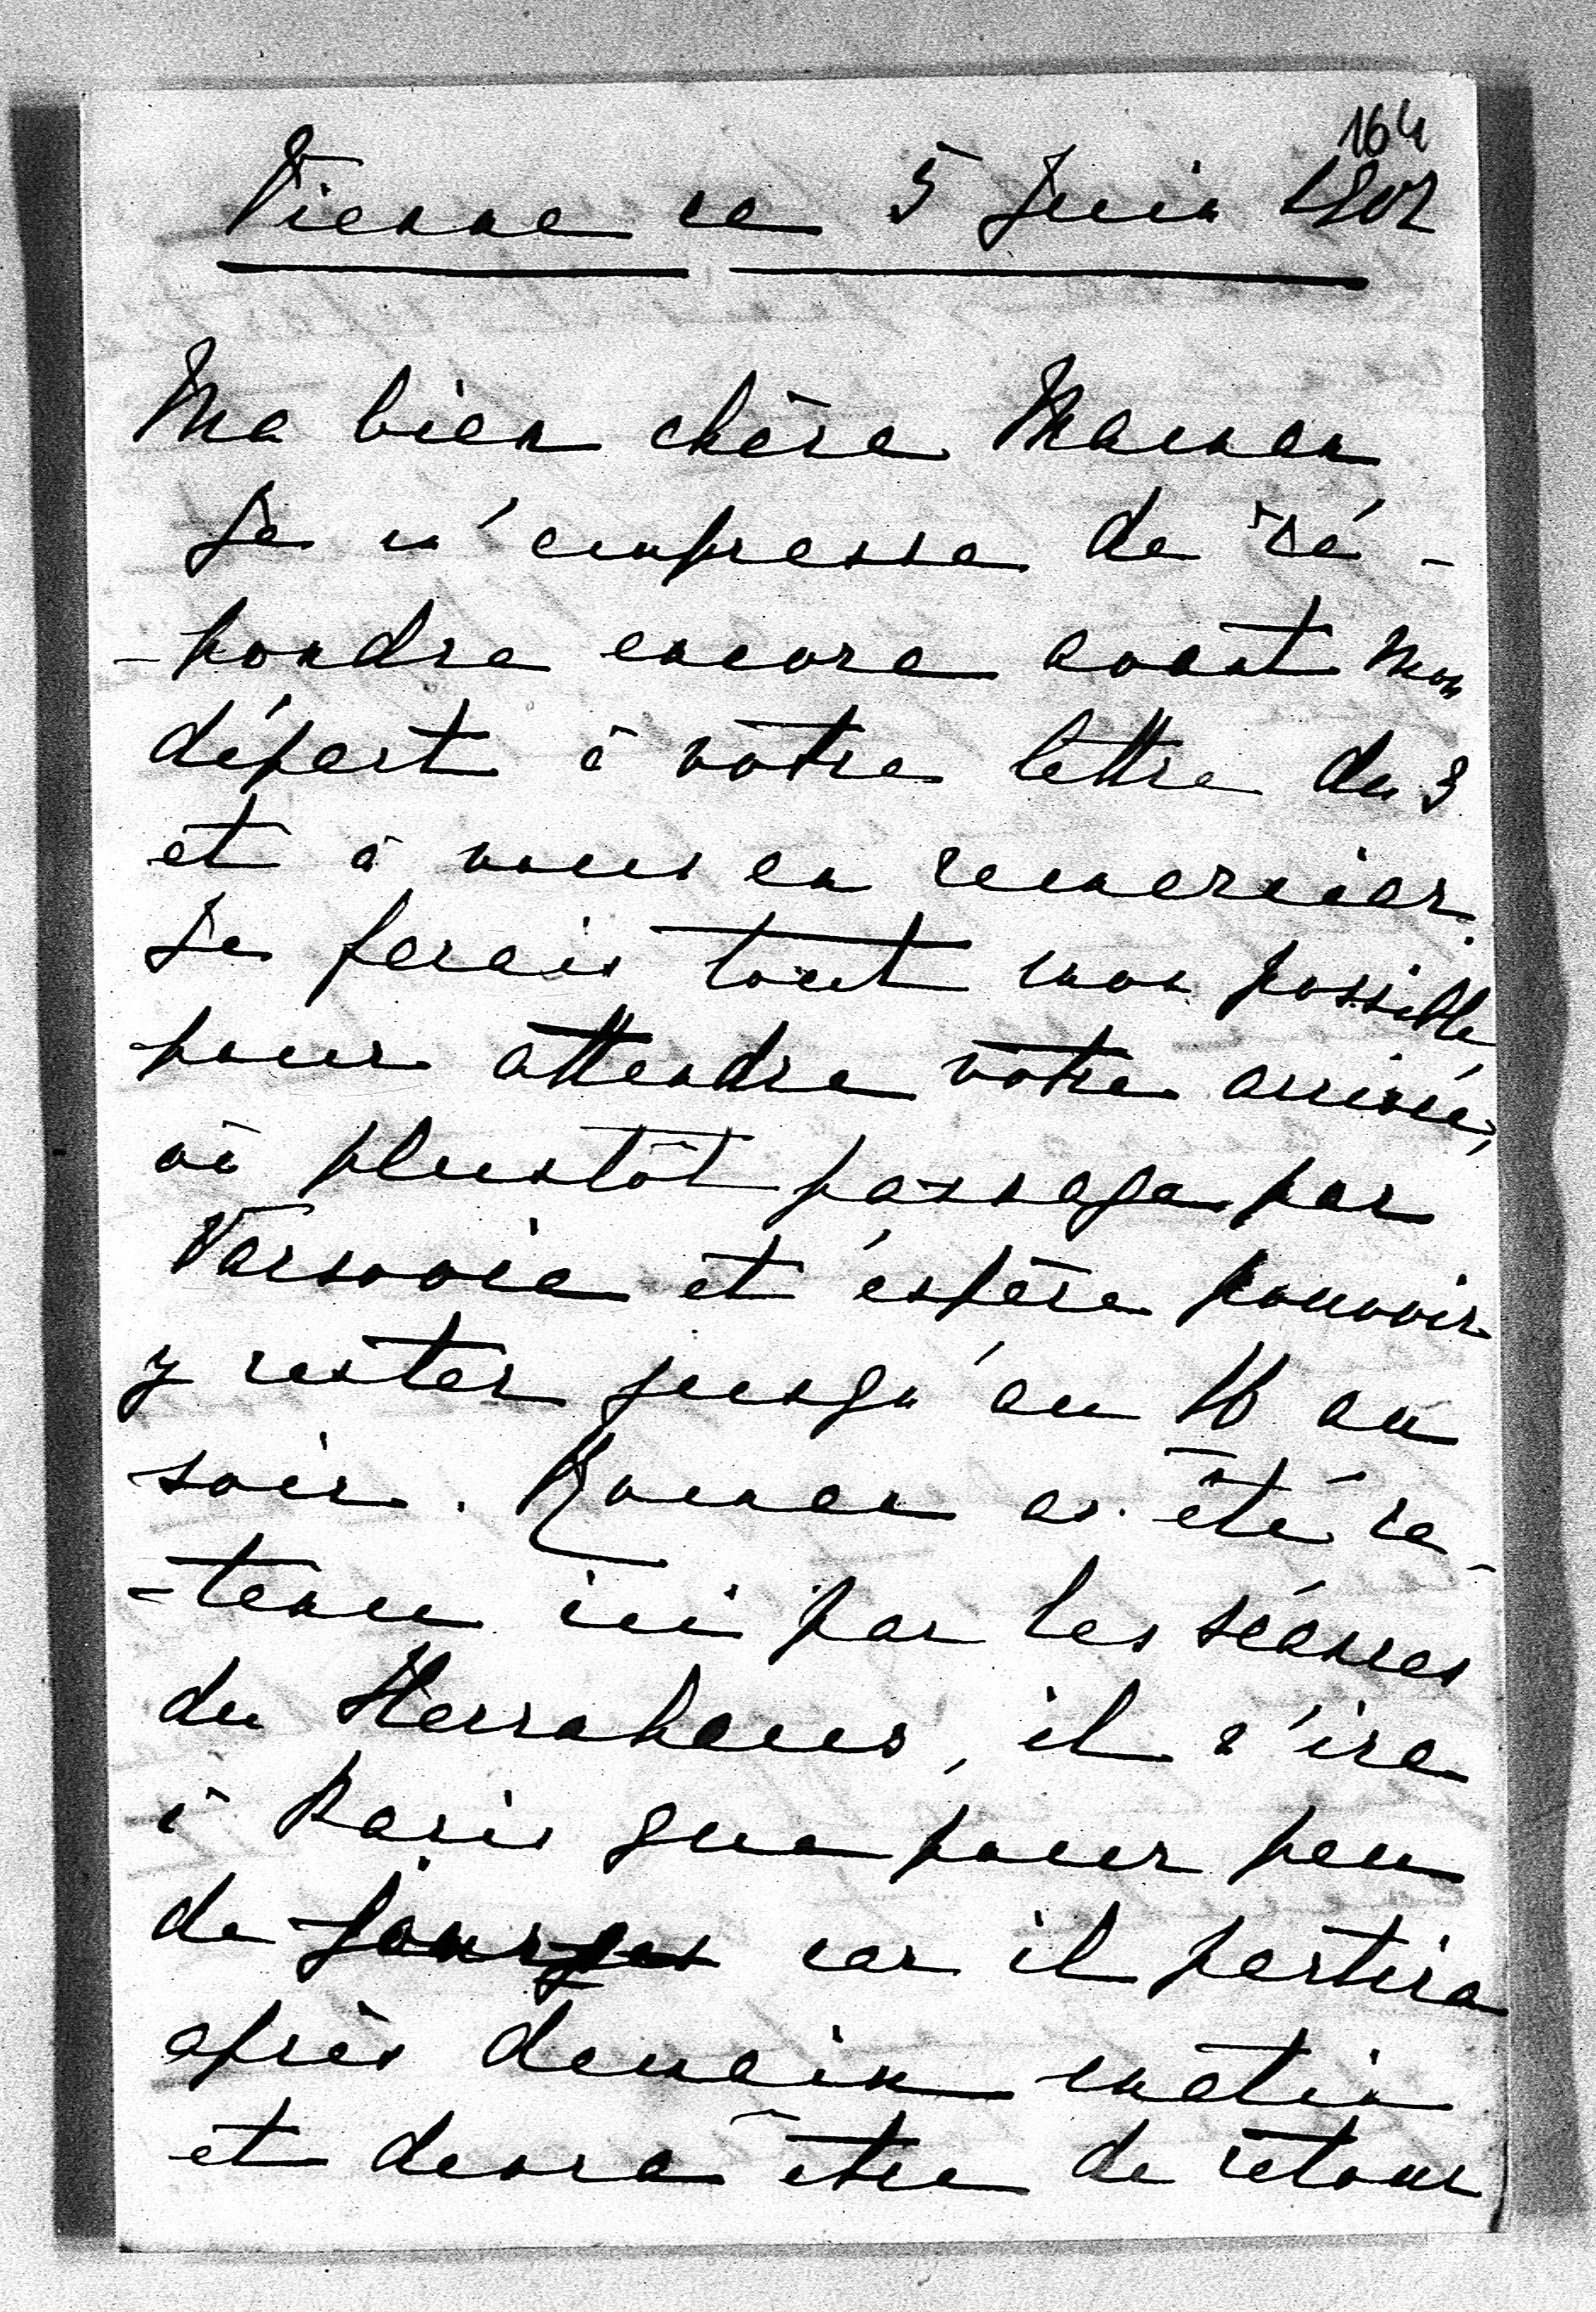 164
Vienne ce 5 Juin 1902
Ma bien chère Maman
Je m'empresse de ré-
-pondre encore avant mon
départ à vôtre lettre du 3
et à vous en remercier.
Je ferais tout mon possible
pour attendre vôtre arrivée,
où plustôt passage par
Varsovie et éspère pouvoir
y rester jusqu'au 16 au
soir. Roman as été re-
-tenu ici par les séances
du Herrahaus, il n'ira
à Paris que pour peu
de jours car il partira
après demain matin
et devra être de retour